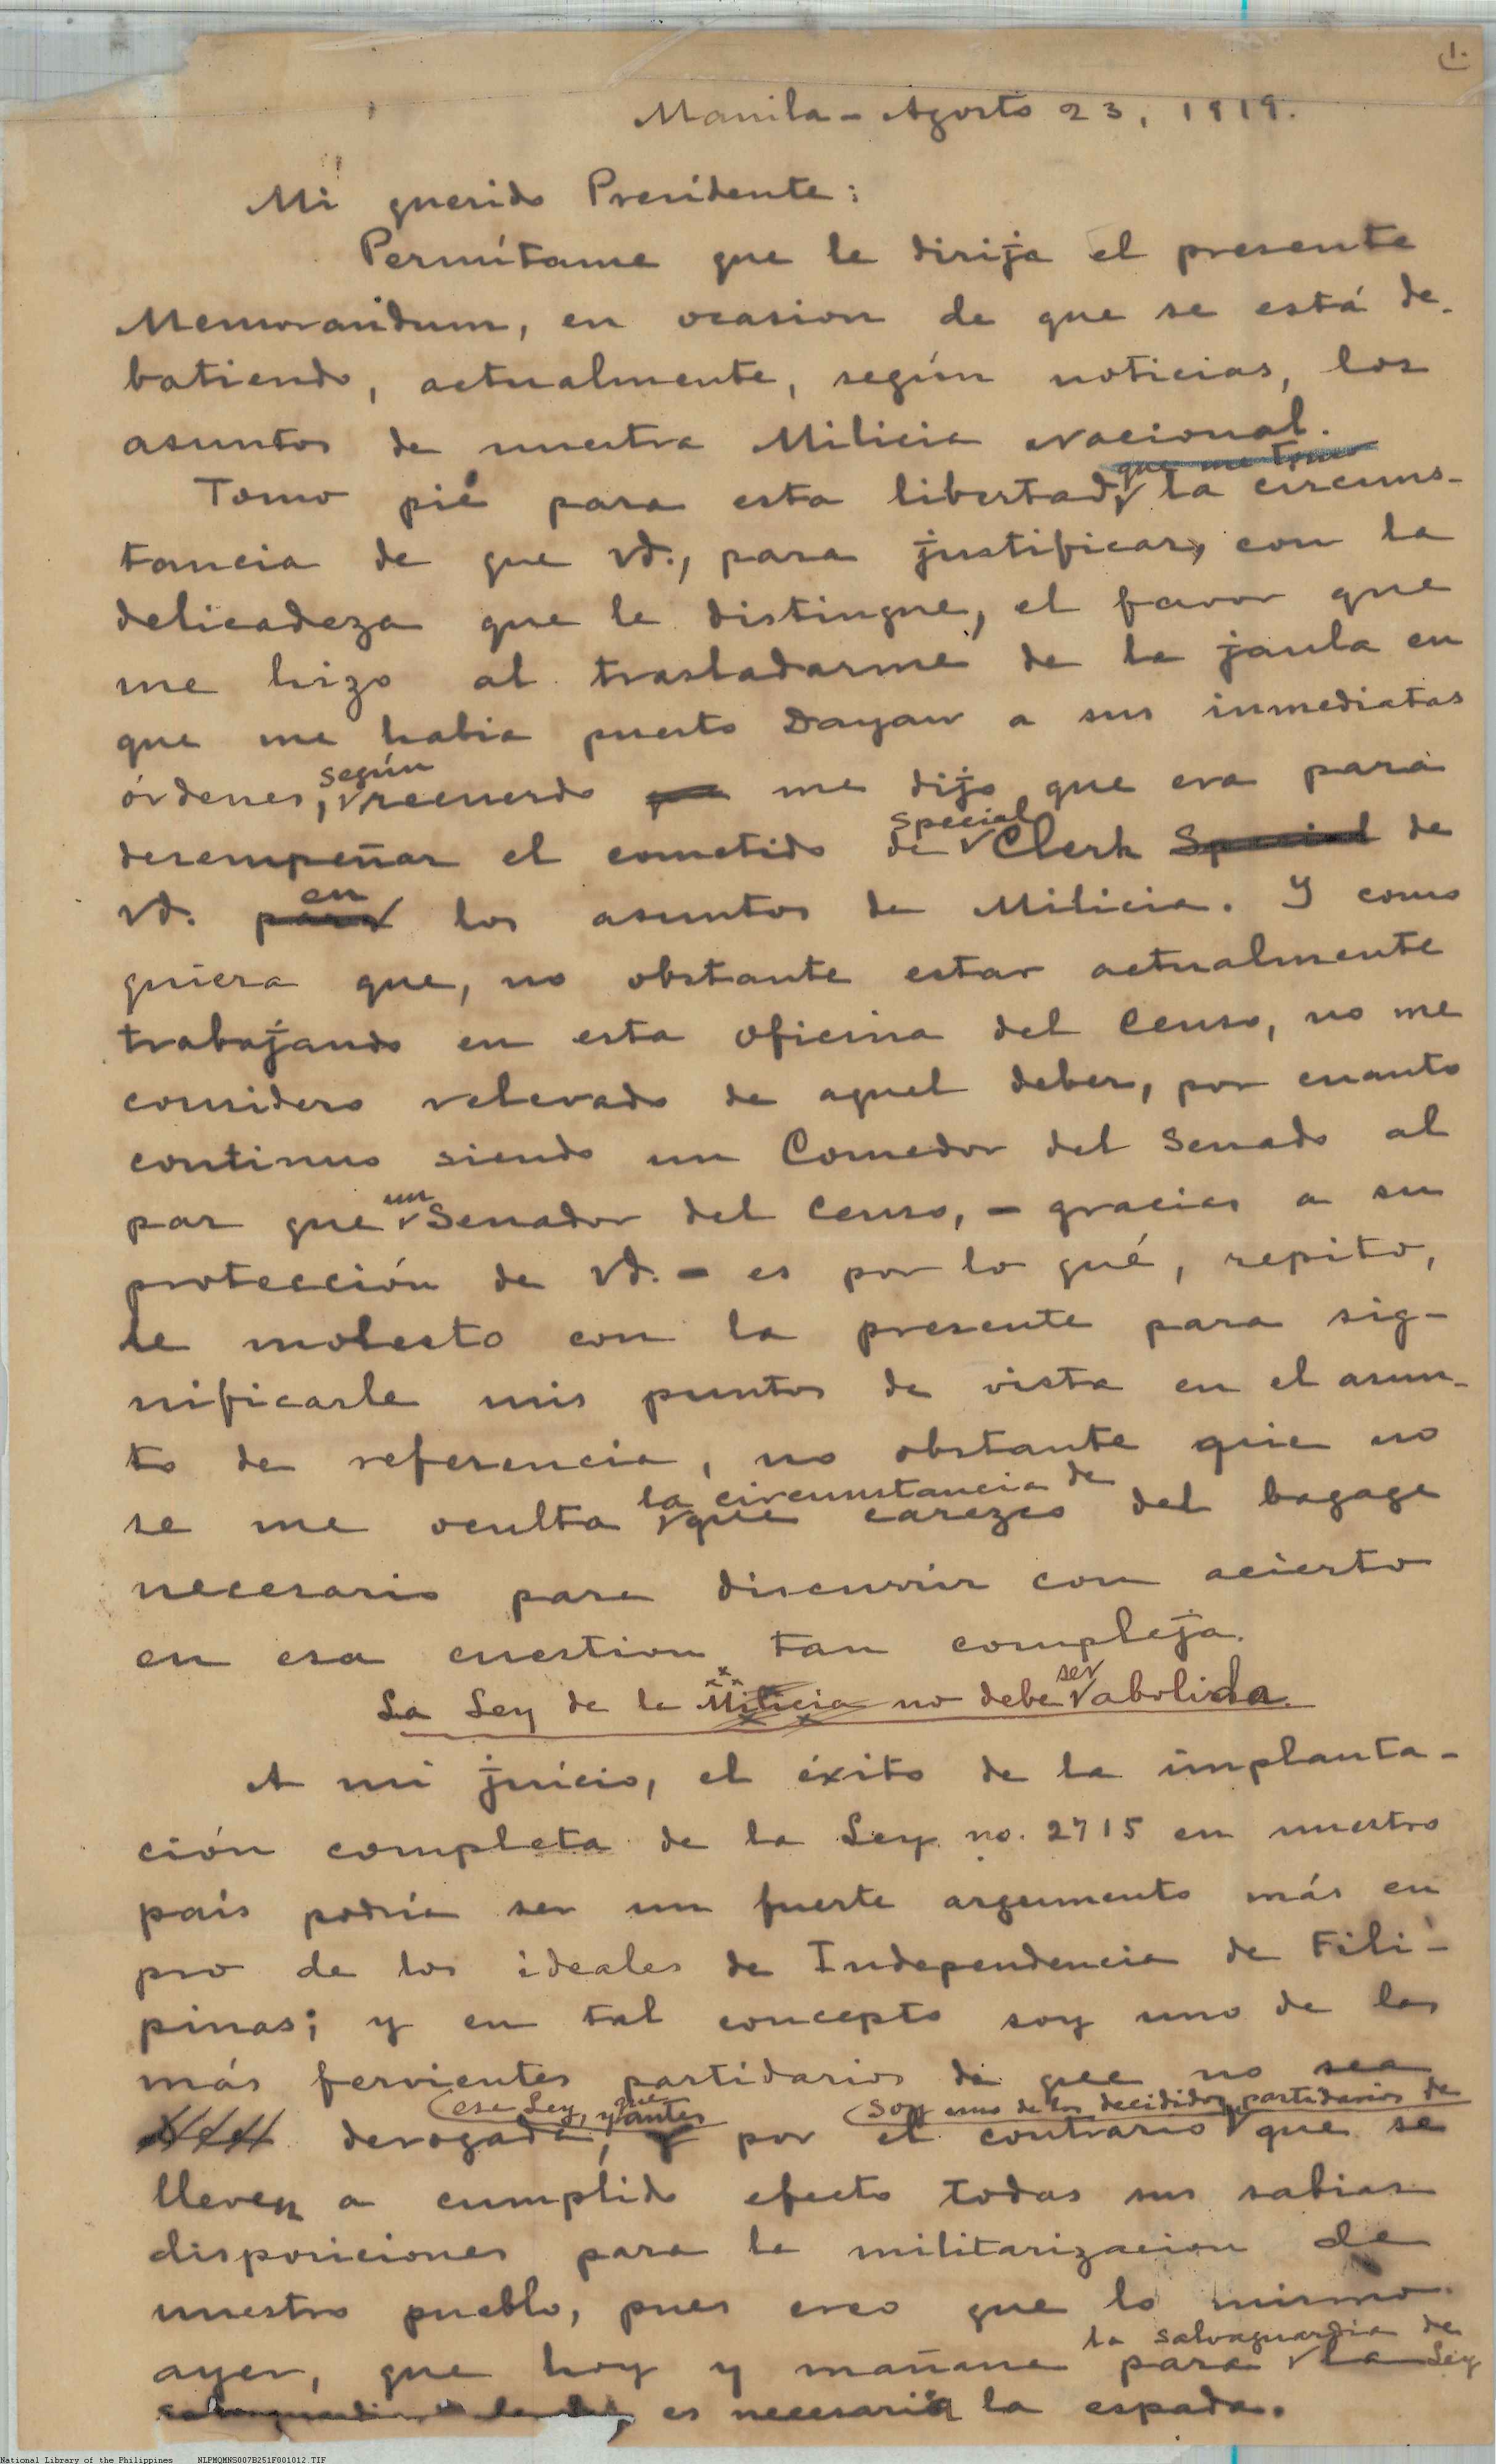 1.
Manila - Agosto 23, 1919.
Mi querido Presidente:
Permítame que le dirija el presente
Memorandum, en ocasion de que se está de-
batiendo, actualmente, según noticias, los
asuntos de nuestra Milicia Nacional.
que me tomo
Tomo pié para esta libertad, la circuns-
tancia de que Vd., para justificar, con la
delicadeza que le distingue, el favor que
me hizo al trasladarme de la jaula en
que me habia puesto Dayaw a sus inmediatas
según
órdenes, recuerdo me dijo que era para
special
desempeñar el cometido de Clerk Special de
en
Vd. para los asuntos de Milicia. Y como
quiera que, no obstante estar actualmente
trabajando en esta oficina del Censo, no me
considero relevado de aquel deber, por cuanto
continuo siendo un Comedor del Senado al
un
par que Senador del Censo, - gracias a su
protección de Vd. - es por lo qué, repito,
le molesto con la presente para sig-
nificarle mis puntos de vista en el asun-
to de referencia, no obstante que no
la circunstancia de
se me oculta que carezco del bagage
necesario para discurrir con acierto
en esa cuestion tan compleja.
ser
La Ley de la Milicia no debe abolida.
A mi juicio, el éxito de la implanta-
ción completa de la Ley no. 2715 en nuestro
país podría ser un fuerte argumento más en
pro de los ideales de Independencia de Fili-
pinas; y en tal concepto soy uno de los
más fervientes partidarios de que no sea
esa Ley, y antes que soy uno de los decididos partidarios de
derogada, y por el contrario que se
lleven a cumplido efecto todas sus sabias
disposiciones para la militarizacion de
nuestro pueblo, pues creo que lo mismo
la salvaguardia de
ayer, que hoy y mañana para la Ley
es necesaria la espada.
National Library of the Philippines NLPMQMNS007B251F001012.TIF